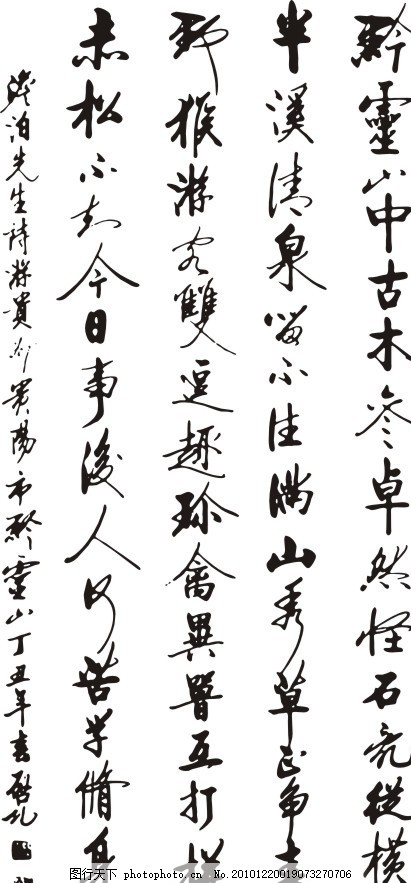 黔靈山中古木參卓然怪石亮從橫
半溪清泉留不住滿山秀草正爭
野猴游客雙逗趣珍禽異嘼互打
赤松不知今日事後人何苦学脩身
泊先生詩游貴州貴陽市黔靈山丁丑年春
图行天下 photophoto.cn No.20101220019073270706